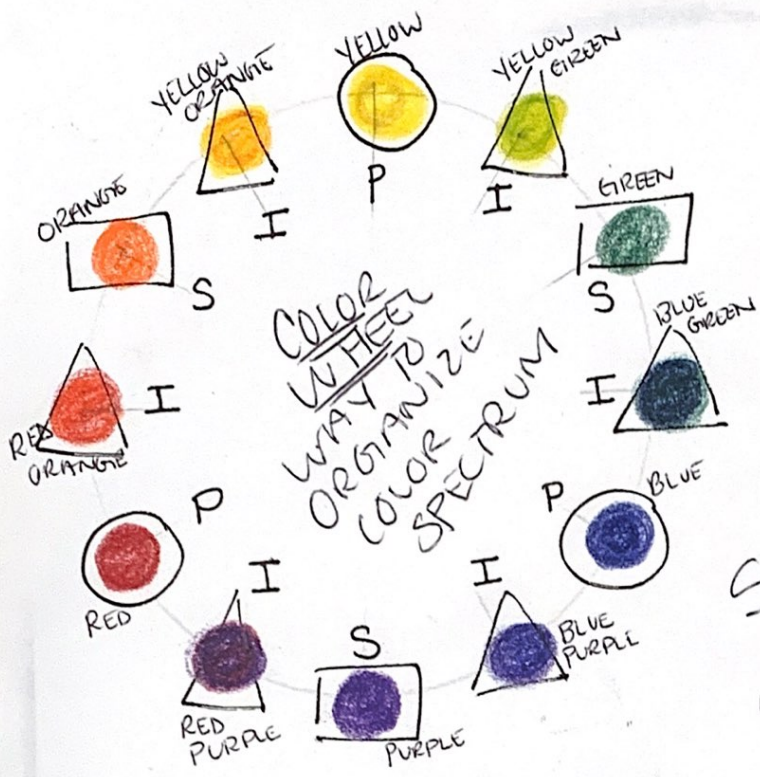 YELLOW
P
YELLOW
GREEN
I
GREEN
S
BLUE
GREEN
I
BLUE
P
BLUE
PURPLE
I
PURPLE
S
RED
PURPLE
I
RED
P
RED
ORANGE
I
ORANGE
S
YELLOW
ORANGE
I
COLOR
WHEEL
WAY TO
ORGANIZE
COLOR
SPECTRUM